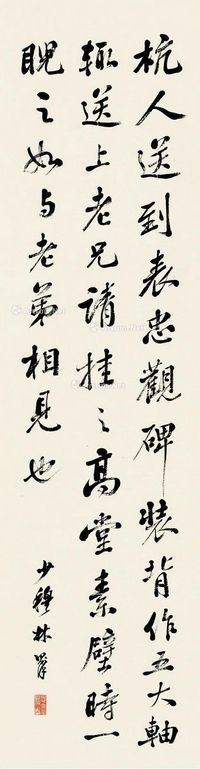 杭人送到表忠觀碑裝背作五大軸
輙送上老兄請挂之高堂素壁時一
睨之如与老弟相見也
少穆林